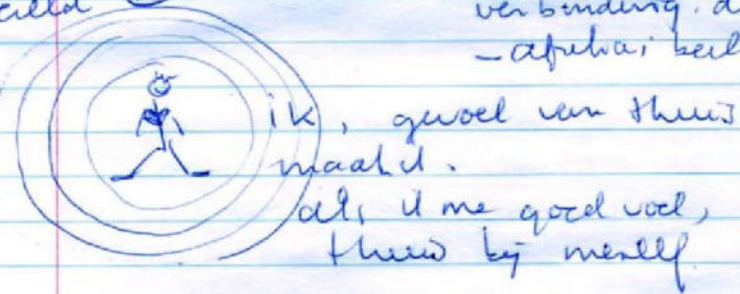 verbinding. d
ik, gevoel van thuis
maakt.
als ik me goed voel,
thuis bij mezelf